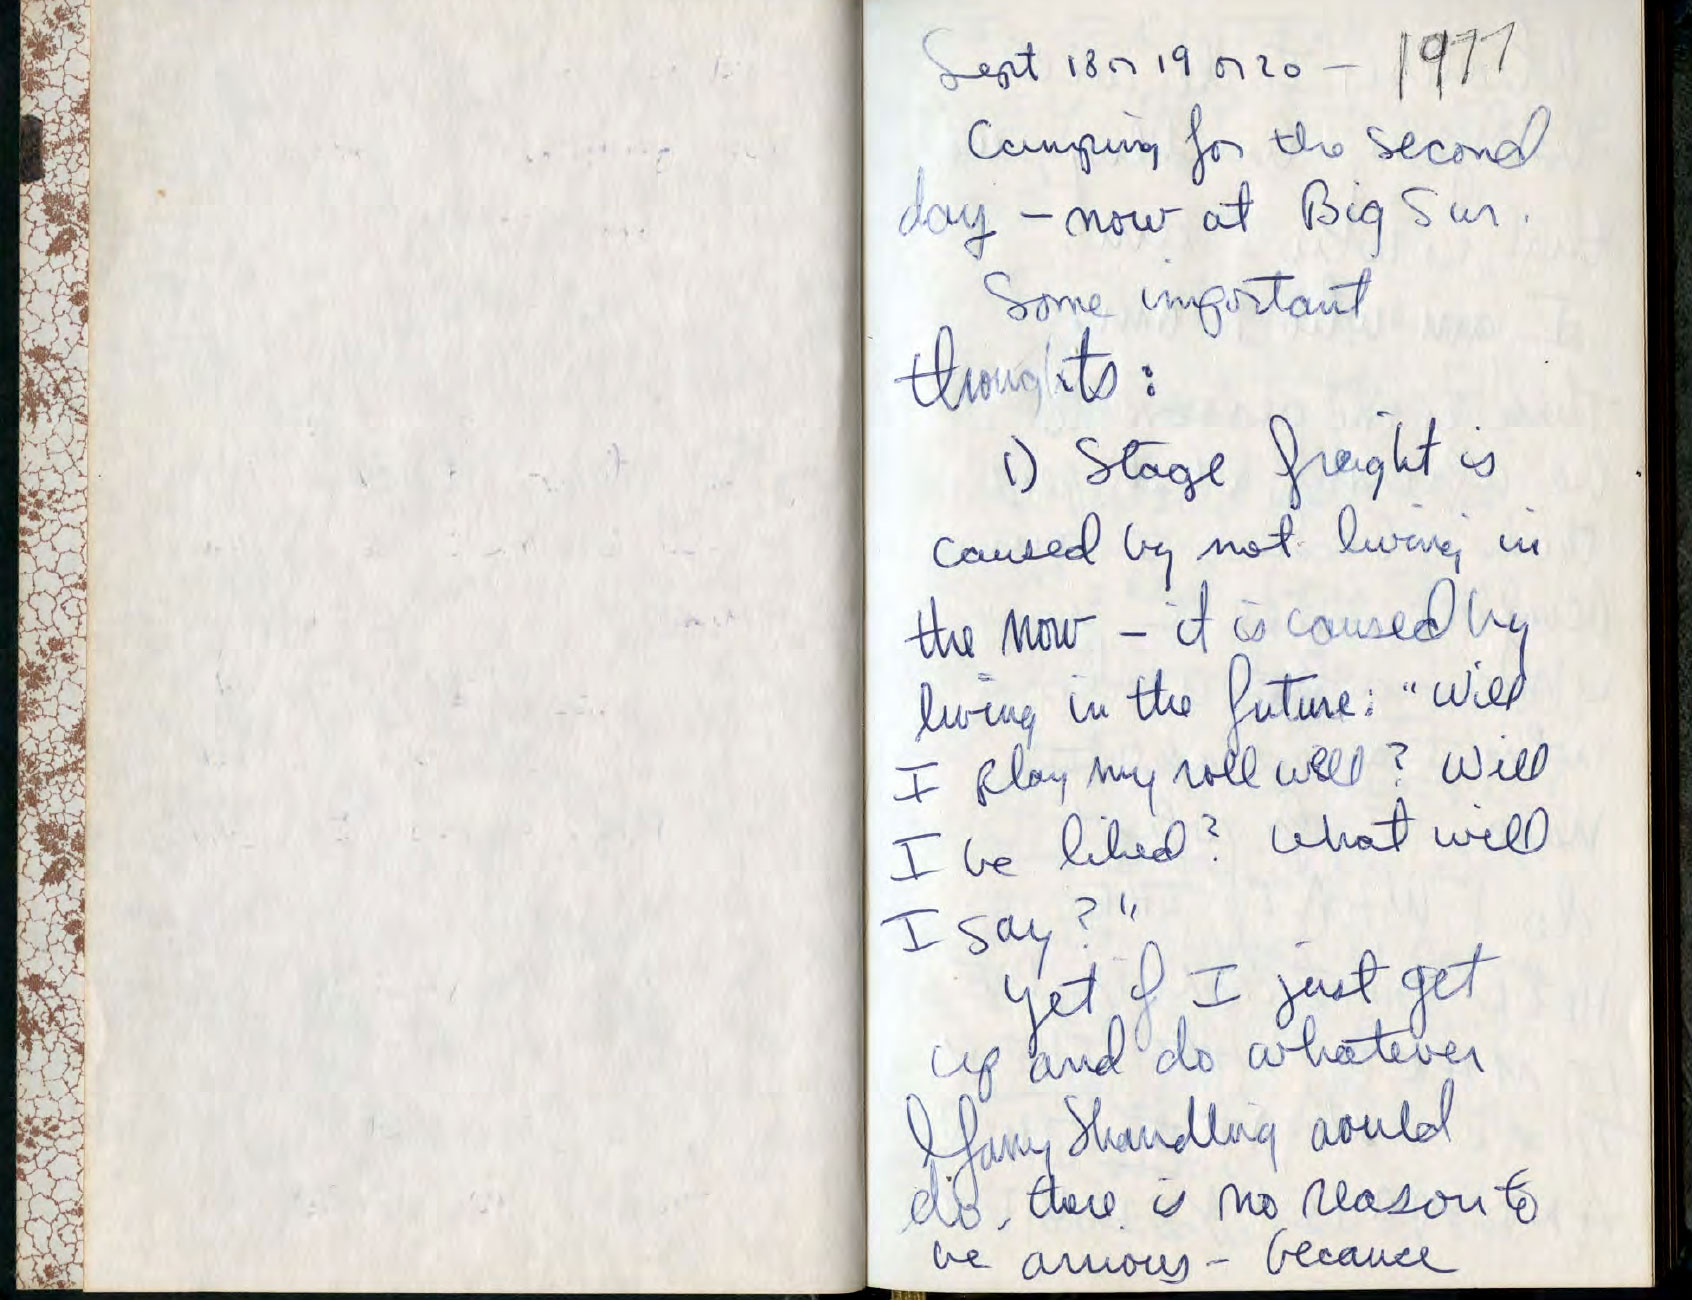 Sept 18 or 19 or 20 — 1977
Camping for the second
day — now at Big Sur.
Some important
thoughts:
1) Stage freight is
caused by not living in
the now — it is caused by
living in the future: "Will
I play my roll well? Will
I be liked? What will
I say?"
Yet if I just get
up and do whatever
Garry Shandling would
do, there is no reason to
be anxious — because